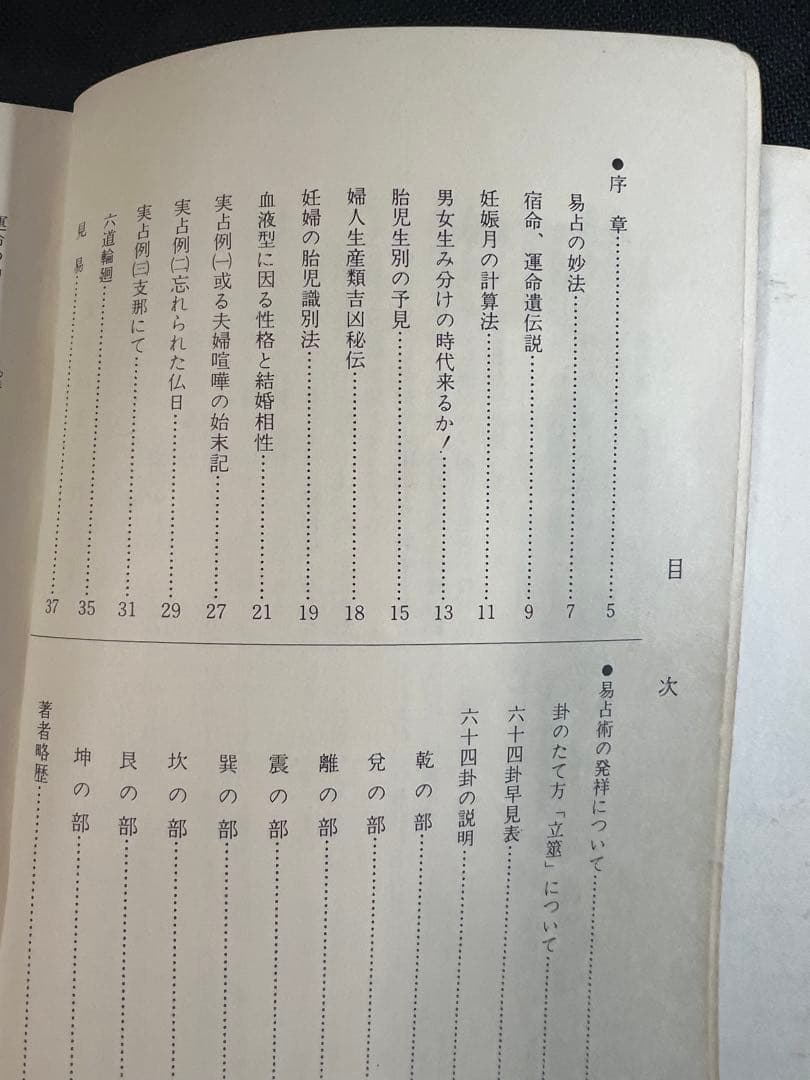 目次
●序章……………5
易占の妙法……………7
宿命、運命遺伝説……………9
妊娠月の計算法……………11
男女生み分けの時代来るか!……………13
胎児生別の予見……………15
婦人生産類吉凶秘伝……………18
妊婦の胎児識別法……………19
血液型に因る性格と結婚相性……………21
実占例㈠或る夫婦喧嘩の始末記……………27
実占例㈡忘れられた仏日……………29
実占例㈢支那にて……………31
六道輪廻……………35
見易……………37
●易占術の発祥について……………
卦のたて方「立筮」について……………
六十四卦早見表……………
六十四卦の説明……………
乾の部……………
兌の部……………
離の部……………
震の部……………
巽の部……………
坎の部……………
艮の部……………
坤の部……………
著者略歴……………